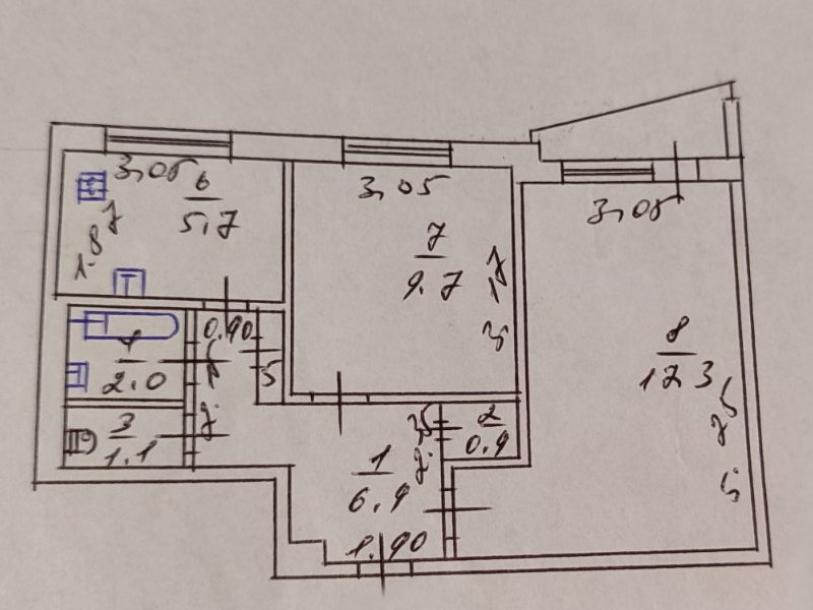 3,05
6
5,7
1.87
3,05
7
9.7
3,17
3,05
8
17 3
5,75
0.90
4
2.0
5
3
1.1
2
0.9
1
6.9
1.90